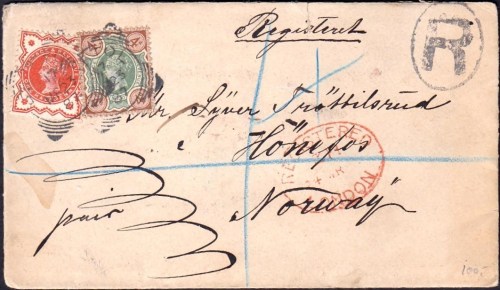 Registeret
R
Mr Syver Tröttilsrud
Hönefos
REGISTERED
LONDON
pr
Norway
100,-